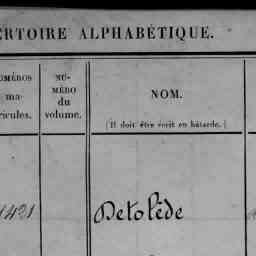 ERTOIRE ALPHABÉTIQUE.
UMÉROS
ma-
ricules.
NU-
MÉRO
du
volume.
NOM.
(Il doit être écrit en bâtarde.)
1421
Detolède